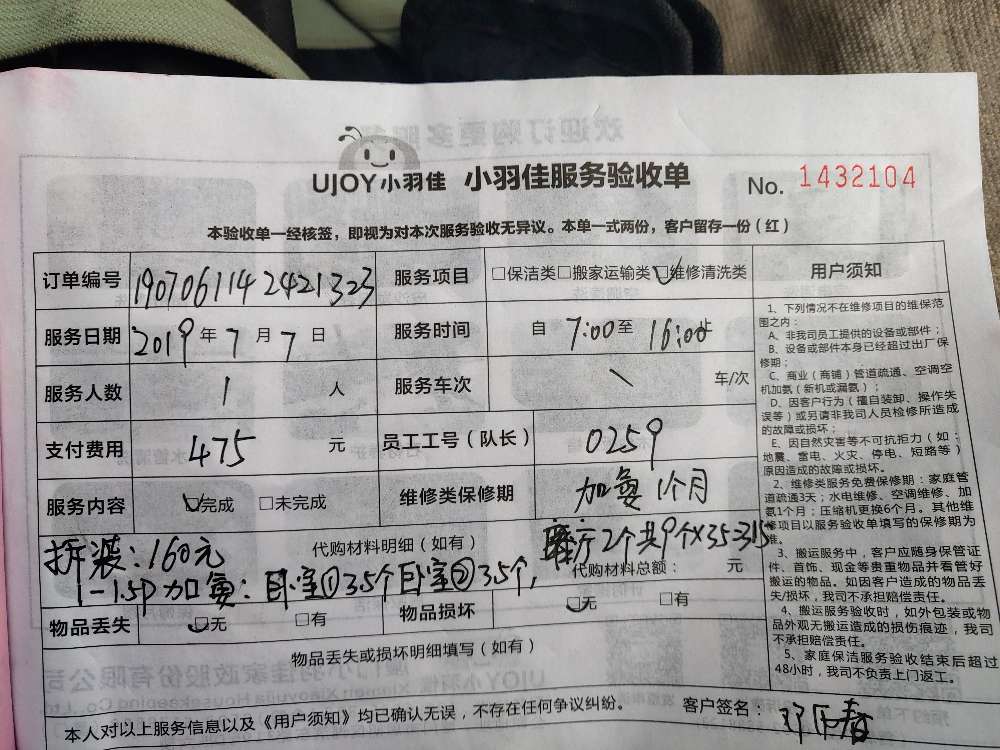 UJOY小羽佳 小羽佳服务验收单 No. 1432104
本验收单一经核签，即视为对本次服务验收无异议。本单一式两份，客户留存一份（红）
订单编号 1907061142421323 服务项目 □保洁类□搬家运输类☑维修清洗类
服务日期 2019年7月7日 服务时间 自7:00至16:00止
服务人数 1人 服务车次 \ 车/次
支付费用 475元 员工工号（队长） 0259
服务内容 ☑完成 □未完成 维修类保修期 加氨1个月
拆装：160元 代购材料明细（如有）
1-1.5P加氨：卧室①3.5个卧室②3.5个，客厅2个共9个×35=315
代购材料总额： 元
物品丢失 ☑无 □有 物品损坏 ☑无 □有
物品丢失或损坏明细填写（如有）
本人对以上服务信息以及《用户须知》均已确认无误，不存在任何争议纠纷。 客户签名：
用户须知
1、下列情况不在维修项目的维保范
围之内：
A、非我司员工提供的设备或部件；
B、设备或部件本身已经超过出厂保
修期；
C、商业（商铺）管道疏通、空调空
机加氨（新机或漏氨）；
D、因客户行为（擅自装卸、操作失
误等）或另请非我司人员检修所造成
的故障或损坏；
E、因自然灾害等不可抗拒力（如：
地震、雷电、火灾、停电、短路等）
原因造成的故障或损坏。
2、维修类服务免费保修期：家庭管
道疏通3天；水电维修、空调维修、加
氨1个月；压缩机更换6个月。其他维
修项目以服务验收单填写的保修期为
准。
3、搬运服务中，客户应随身保管证
件、首饰、现金等贵重物品并看管好
搬运的物品。如因客户造成的物品丢
失/损坏，我司不承担赔偿责任。
4、搬运服务验收时，如外包装或物
品外观无搬运造成的损伤痕迹，我司
不承担赔偿责任。
5、家庭保洁服务验收结束后超过
48小时，我司不负责上门返工。